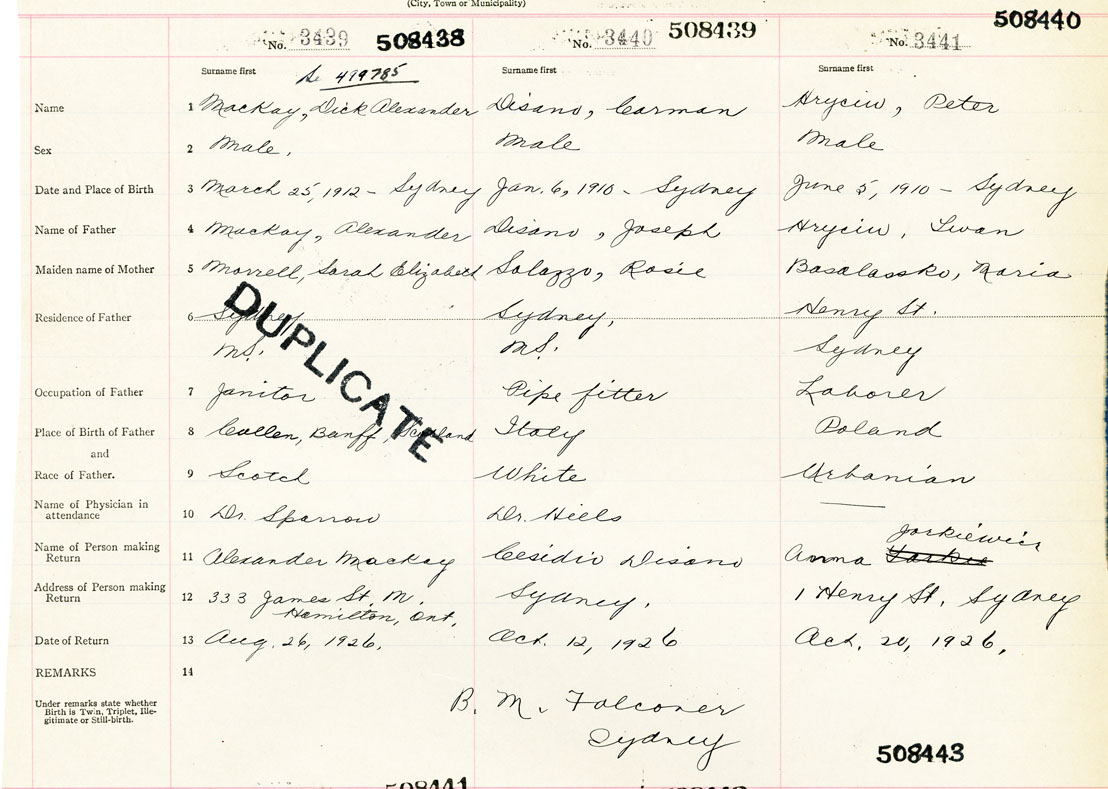 (City, Town or Municipality)
No. 3439 508438 No. 3440 508439 No. 3441 508440
Surname first Surname first Surname first
Se 499785
Name 1 MacKay, Dick Alexander Disano, Carman Hryciw, Peter
Sex 2 Male. Male Male
Date and Place of Birth 3 March 25, 1912 - Sydney Jan. 6, 1910 - Sydney June 5, 1910 - Sydney
Name of Father 4 Mackay, Alexander Disano, Joseph Hryciw, Iwan
Maiden name of Mother 5 Morrell, Sarah Elizabeth Solazzo, Rosie Basalassko, Maria
Residence of Father 6 Sydney Sydney, Henry St.
M.S. M.S. Sydney
DUPLICATE
Occupation of Father 7 Janitor Pipe fitter Laborer
Place of Birth of Father 8 Cullen, Banff, Scotland Italy Poland
and
Race of Father. 9 Scotch White Urbanian
Name of Physician in
attendance 10 Dr. Sparrow Dr. Hiels
Name of Person making
Return 11 Alexander Mackay Cesidio Disano Anna Jarkiewicz
Address of Person making
Return 12 333 James St. N. Sydney. 1 Henry St. Sydney
Hamilton, Ont.
Date of Return 13 Aug. 26, 1926. Oct. 12, 1926 Oct. 20, 1926,
REMARKS 14
Under remarks state whether
Birth is Twin, Triplet, Ille-
gitimate or Still-birth.
B. M. Falconer
Sydney
508443
508441